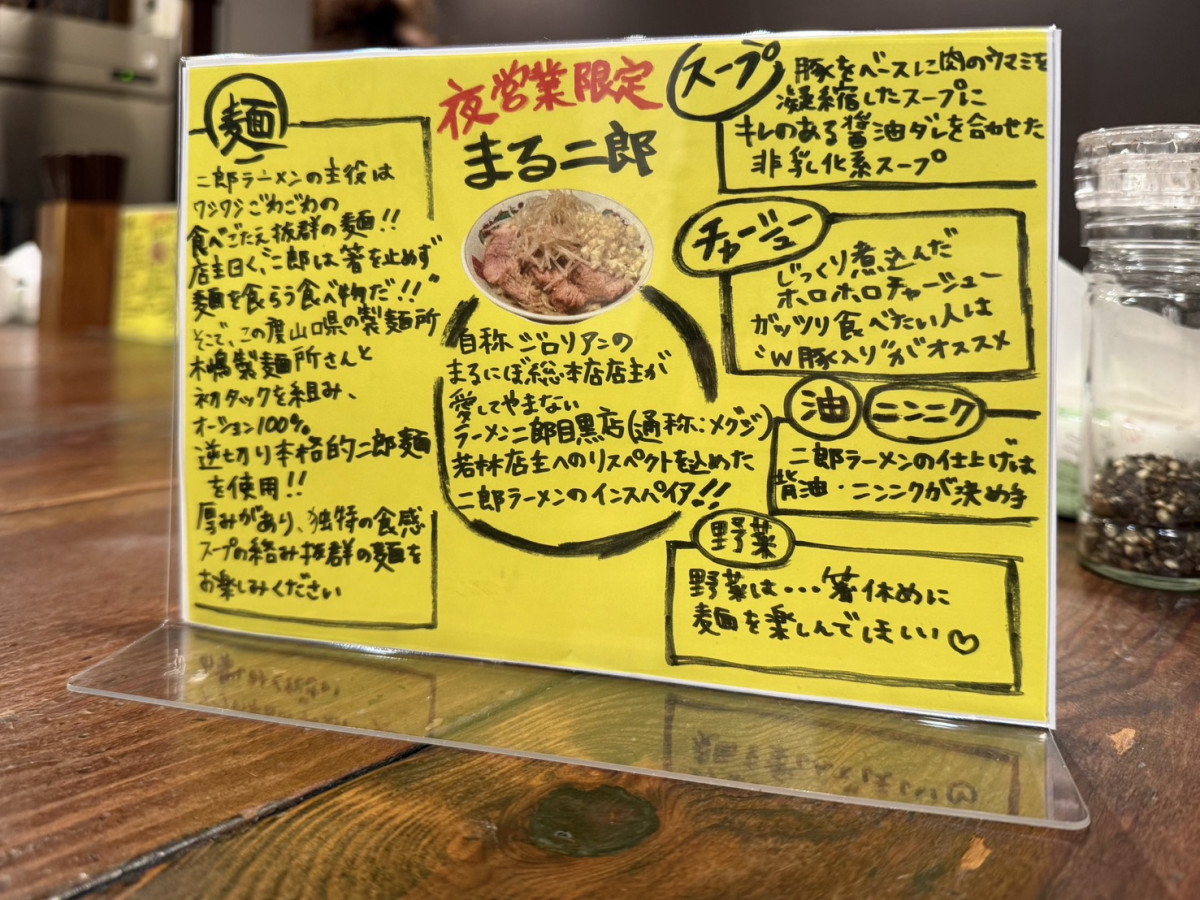 麺
二郎ラーメンの主役は
ワシワシごわごわの
食べごたえ抜群の麺!!
店主曰く、二郎は、箸を止めず
麺を食らう食べ物だ!!"
そこで、この度山口県の製麺所
木嶋製麺所さんと
初タッグを組み、
オーション100%
逆切り本格的二郎麺
を使用!!
厚みがあり、独特の食感
スープの絡み抜群の麺を
お楽しみください
夜営業限定
まる二郎
自称ジロリアンの
まるにぼ総本店店主が
愛してやまない
ラーメン二郎目黒店(通称:メグジ)
若林店主へのリスペクトを込めた
二郎ラーメンのインスパイア!!
スープ
豚をベースに肉のウマミを
凝縮したスープに
キレのある醤油ダレを合わせた
非乳化系スープ
チャーシュー
じっくり煮込んだ
ホロホロチャーシュー
ガッツリ食べたい人は
"W豚入り"がオススメ
油 ニンニク
二郎ラーメンの仕上げは
背油・ニンニクが決め手
野菜
野菜は…箸休めに
麺を楽しんでほしい♡